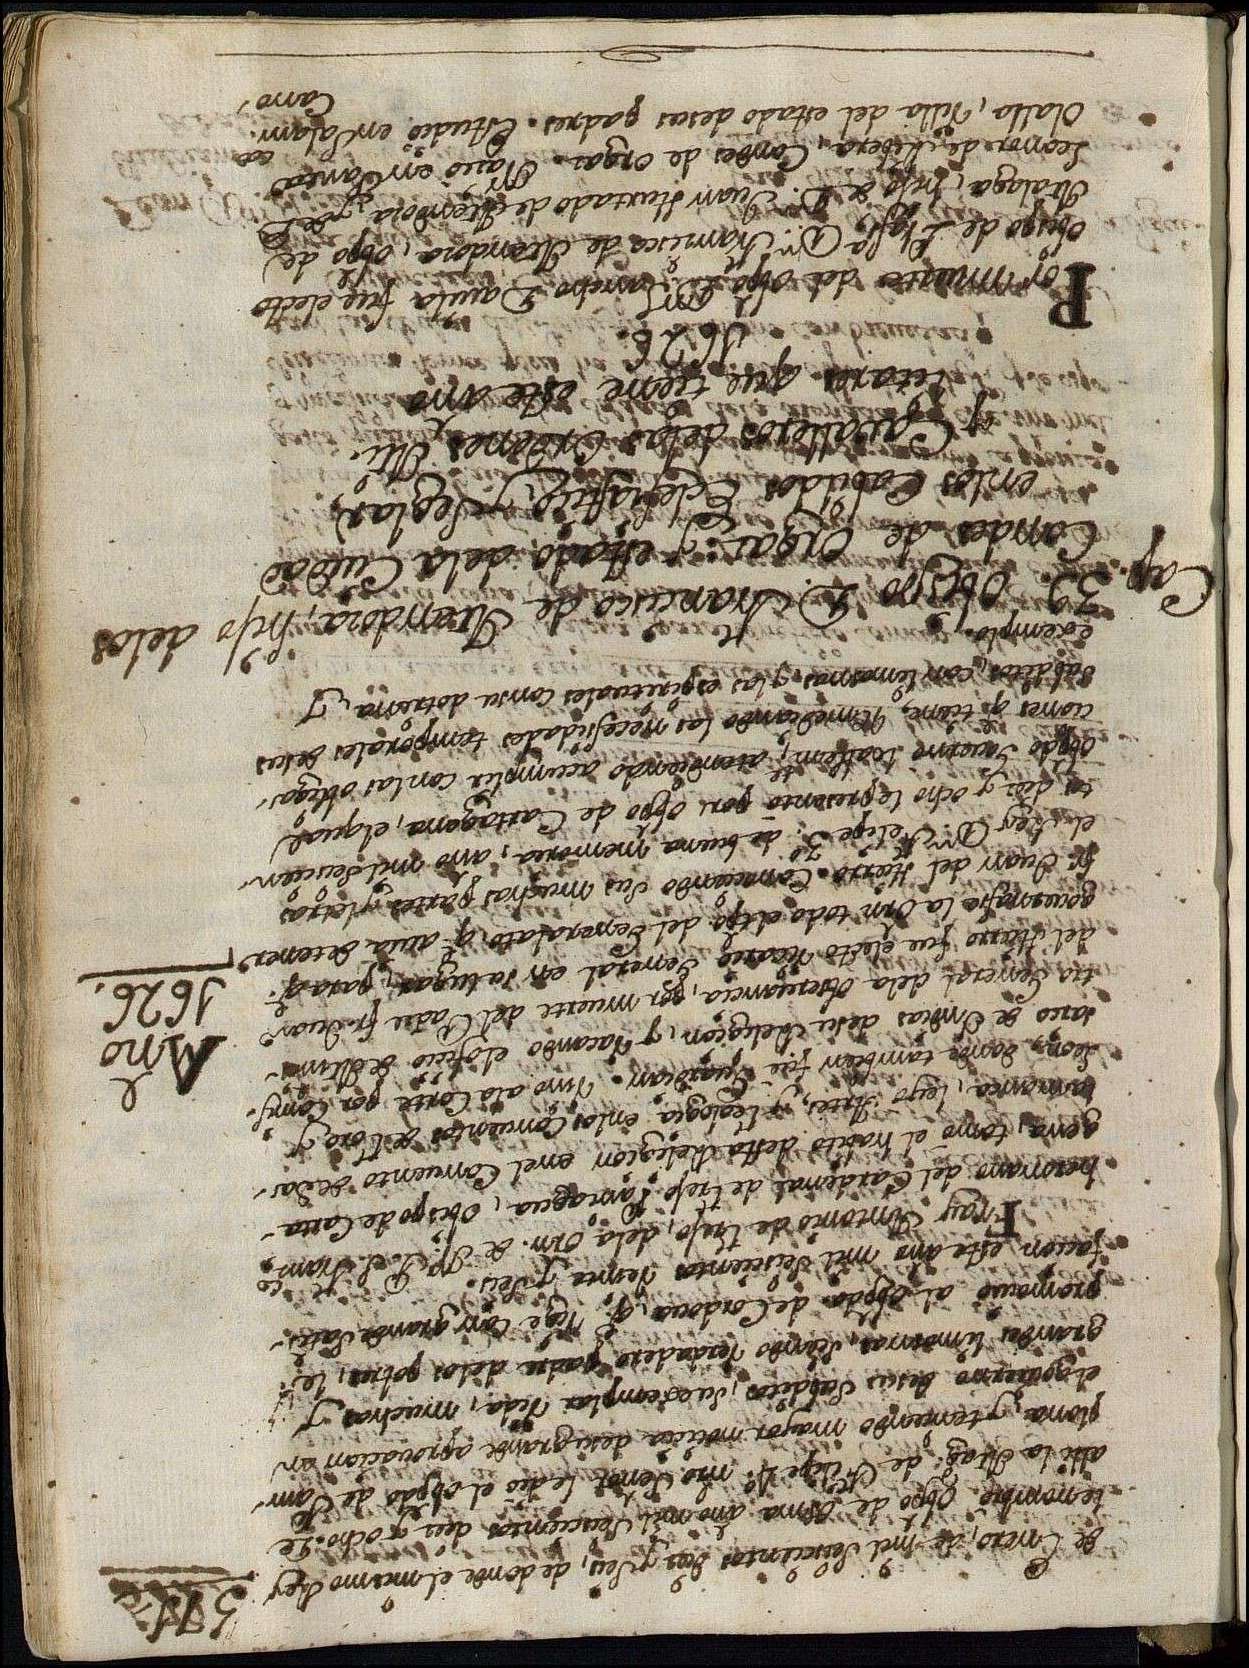 de Enero, de mil seiscientos diez y seis, de donde el mismo Rey
le nombrò Obpo de Osma año mil seiscientos diez y ocho. Le
alli la Mag.d de Felipe 4.º nro Señor le dio el obpdo de Pam-
plona, y teniendo mayor noticia de su grande aprovacion en
el govierno de sus subditos, su exemplar vida, muchas, y
grandes limosnas, siendo verdadero padre de los pobres, le
promovio al obpdo de Cordova, q̃ rege con grande satis-
facion este año mil seiscientos veynte y seis.
Fray Antonio de Trejo, de la Orn. de N. P. S. Franco,
hermano del Cardenal de Trejo Paniagua, Obispo de Carta-
gena, tomò el habito desta Religion en el Convento de Sa-
lamanca, leyo Artes, y Teologia en los Conventos de Toro, y
Leon, donde tambien fue guardian. Vino a la Corte por Comi-
sario de Indias de su Religion, y vacando el oficio de Minis-
tro General de la Observancia, por muerte del Padre fr. Juan
del Hierro fue electo Vicario General en su lugar, para q̃
governasse la Orn todo el tpo del Generalato, q̃ avia de tener
fr. Juan del Hierro. Conociendo sus muchas partes, y letras
el Rey Dn Felipe 3.º de buena memoria, año mil seiscien-
tos diez y ocho le presentò por Obpo de Cartagena, el qual
obpdo govierna loablem.te, atendiendo a cumplir con las obliga-
ciones q̃ tiene, remediando las necessidades temporales de sus
subditos, con limosnas, y las espirituales con su dotrina, y
exemplo.
Año
1626.
Cap. 39. Obispo D. Francisco de Mendoza, hijo de los
Condes de Orgaz: y estado de la Ciudad
en los Cabildos Eclesiastico, y Seglar,
y Cavalleros de las Ordenes Mi-
litares que tiene este año
1626.
Por muerte del Obpo D. Sancho Davila fue electo
Obispo de Plasa Dn Francisco de Mendoza, Obpo de
Malaga, hijo de D. Juan Hurtado de Mendoza, y de Da
Leonor de Ribera, Condes de Orgaz. Naciò en Santa
Olalla, Villa del estado de sus padres. Estudiò en Salam.ca
Cano,